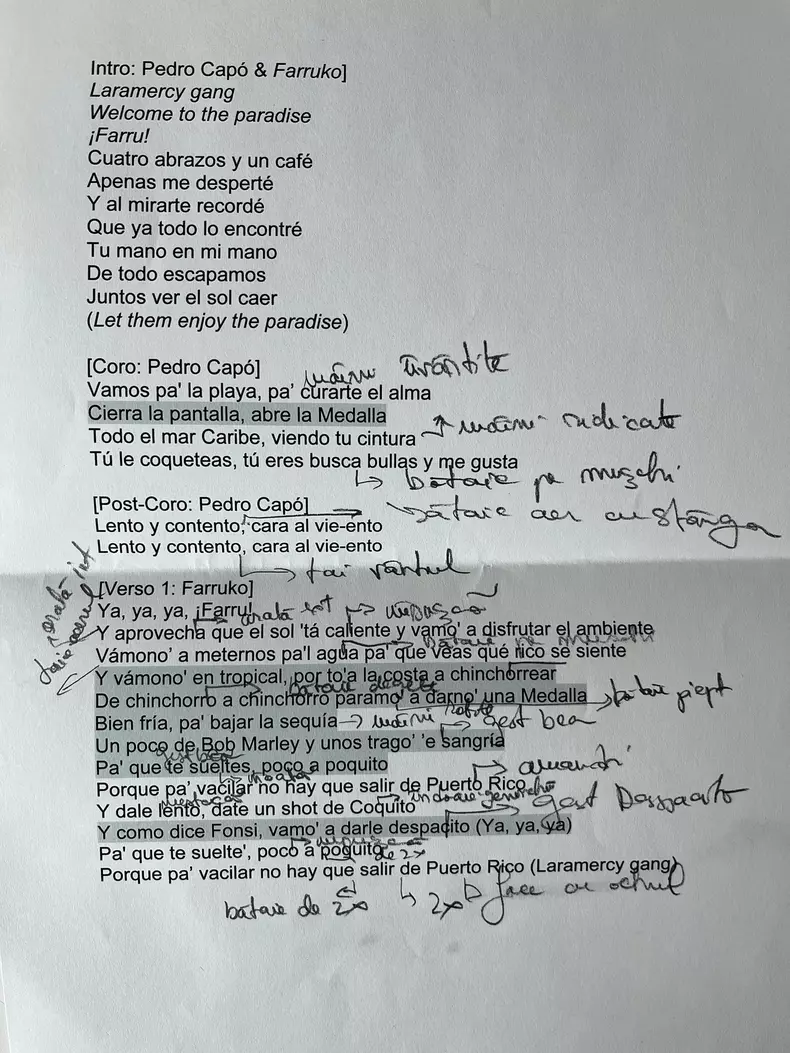 Intro: Pedro Capó & Farruko]
Laramercy gang
Welcome to the paradise
¡Farru!
Cuatro abrazos y un café
Apenas me desperté
Y al mirarte recordé
Que ya todo lo encontré
Tu mano en mi mano
De todo escapamos
Juntos ver el sol caer
(Let them enjoy the paradise)
[Coro: Pedro Capó]
mâini
Vamos pa' la playa, pa' curarte el alma
Cierra la pantalla, abre la Medalla
mâini ridicate
Todo el mar Caribe, viendo tu cintura
Tú le coqueteas, tú eres busca bullas y me gusta
bataie pe
[Post-Coro: Pedro Capó]
Lento y contento, cara al vie-ento
Lento y contento, cara al vie-ento
tai vântul
[Verso 1: Farruko]
Ya, ya, ya, ¡Farru!
Y aprovecha que el sol 'tá caliente y vamo' a disfrutar el ambiente
Vámono' a meternos pa'l agua pa' que veas qué rico se siente
Y vámono' en tropical, por to'a la costa a chinchorrear
De chinchorro a chinchorro paramo' a darno' una Medalla
bataie piept
Bien fría, pa' bajar la sequía
gest bea
Un poco de Bob Marley y unos trago' 'e sangría
Pa' que te sueltes, poco a poquito
Porque pa' vacilar no hay que salir de Puerto Rico
Y dale lento, date un shot de Coquito
gest Despacito
Y como dice Fonsi, vamo' a darle despacito (Ya, ya, ya)
Pa' que te suelte', poco a poquito
de 2x
Porque pa' vacilar no hay que salir de Puerto Rico (Laramercy gang)
bataie de 2x
2x
face cu ochiul